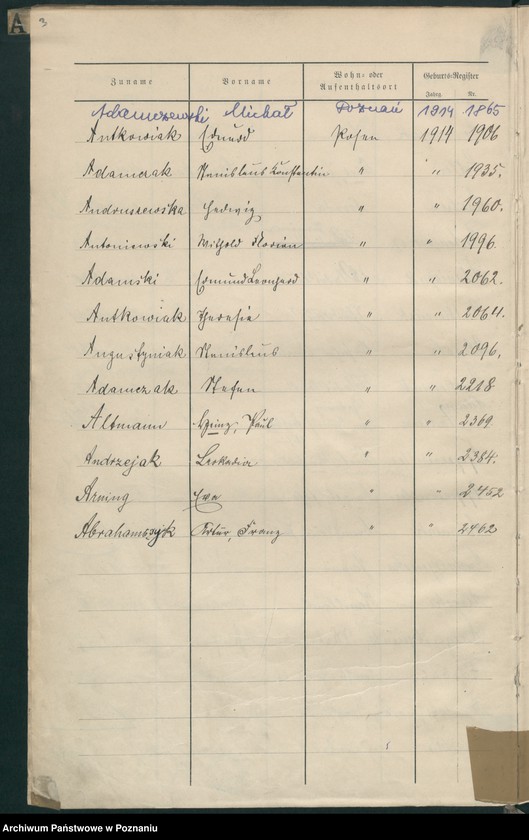 A 3
Zuname Vorname Wohn- oder Aufenthaltsort Geburts-Register
Jahrg. Nr.
Adamczewski Michał Poznań 1914 1865
Antkowiak Eduard Posen 1914 1906
Adamczak Stanislaus Konstantin " " 1935.
Andruszewska Hedwig " " 1960.
Antoniewski Withold Florian " " 1996
Adamski Edmund Leonhard " " 2062.
Antkowiak Theresie " " 2064.
Augustyniak Stanislaus " " 2096.
Adamczak Stefan " " 2218
Altmann Heinz, Paul " " 2369
Andrzejak Leokadia " " 2384.
Arning Eva " " 2452
Abrahamczyk Artur, Franz " " 2462
Archiwum Państwowe w Poznaniu